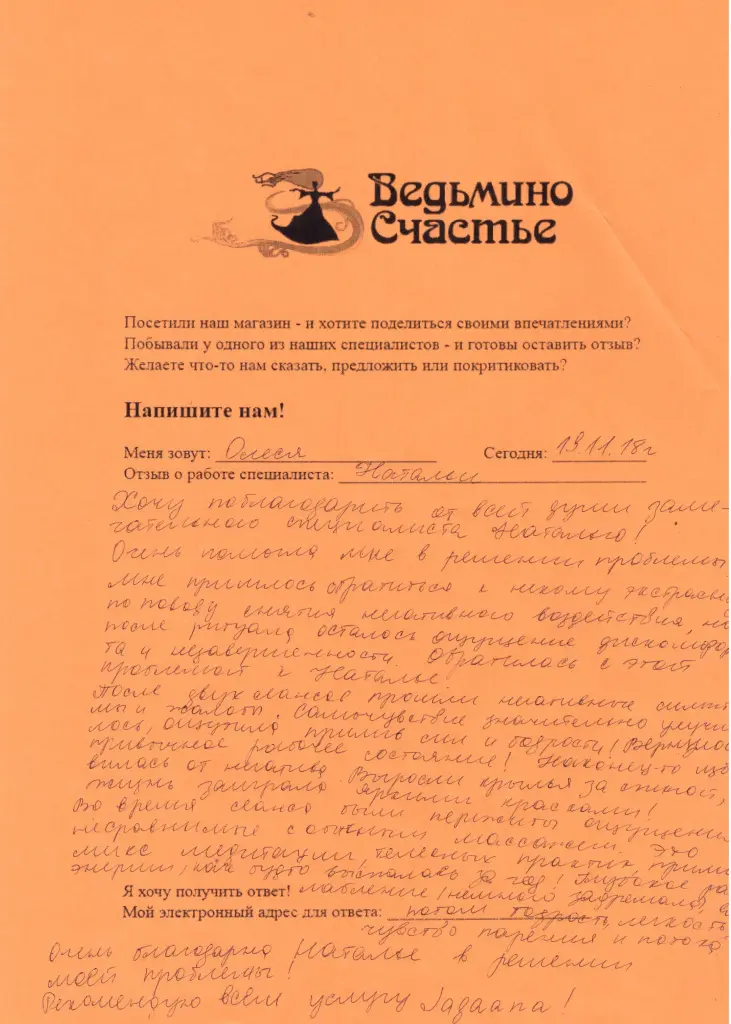 Ведьмино
Счастье
Посетили наш магазин - и хотите поделиться своими впечатлениями?
Побывали у одного из наших специалистов - и готовы оставить отзыв?
Желаете что-то нам сказать, предложить или покритиковать?
Напишите нам!
Меня зовут: Олеся Сегодня: 19.11.18г
Отзыв о работе специалиста: Натальи
Хочу поблагодарить от всей души заме-
чательного специалиста Наталью!
Очень помогла мне в решении проблемы
Мне пришлось обратиться к некому экстрасен
по поводу снятия негативного воздействия, но
после ритуала осталось ощущение дискомфор
та и незавершенности. Обратилась с этой
проблемой к Наталье.
После двух сеансов прошли негативные симпт
мы и жалобы. Самочувствие значительно улучи
лось, ощутила прилив сил и бодрости! Вернулос
привычное рабочее состояние! Наконец-то изб
вилась от негатива. Выросли крылья за спиной,
жизнь заиграла яркими красками!
Во время сеанса были пережиты ощущения
несравнимые с обычным массажем. Это
микс медитации, телесных практик, прили
энергии, как будто выспалась за год! Глубокое ра
Я хочу получить ответ! лабление, немного задремала, а
Мой электронный адрес для ответа: потом бодрость, легкость
чувство парения и потока
Очень благодарна Наталье в решении
моей проблемы!
Рекомендую всем услугу !